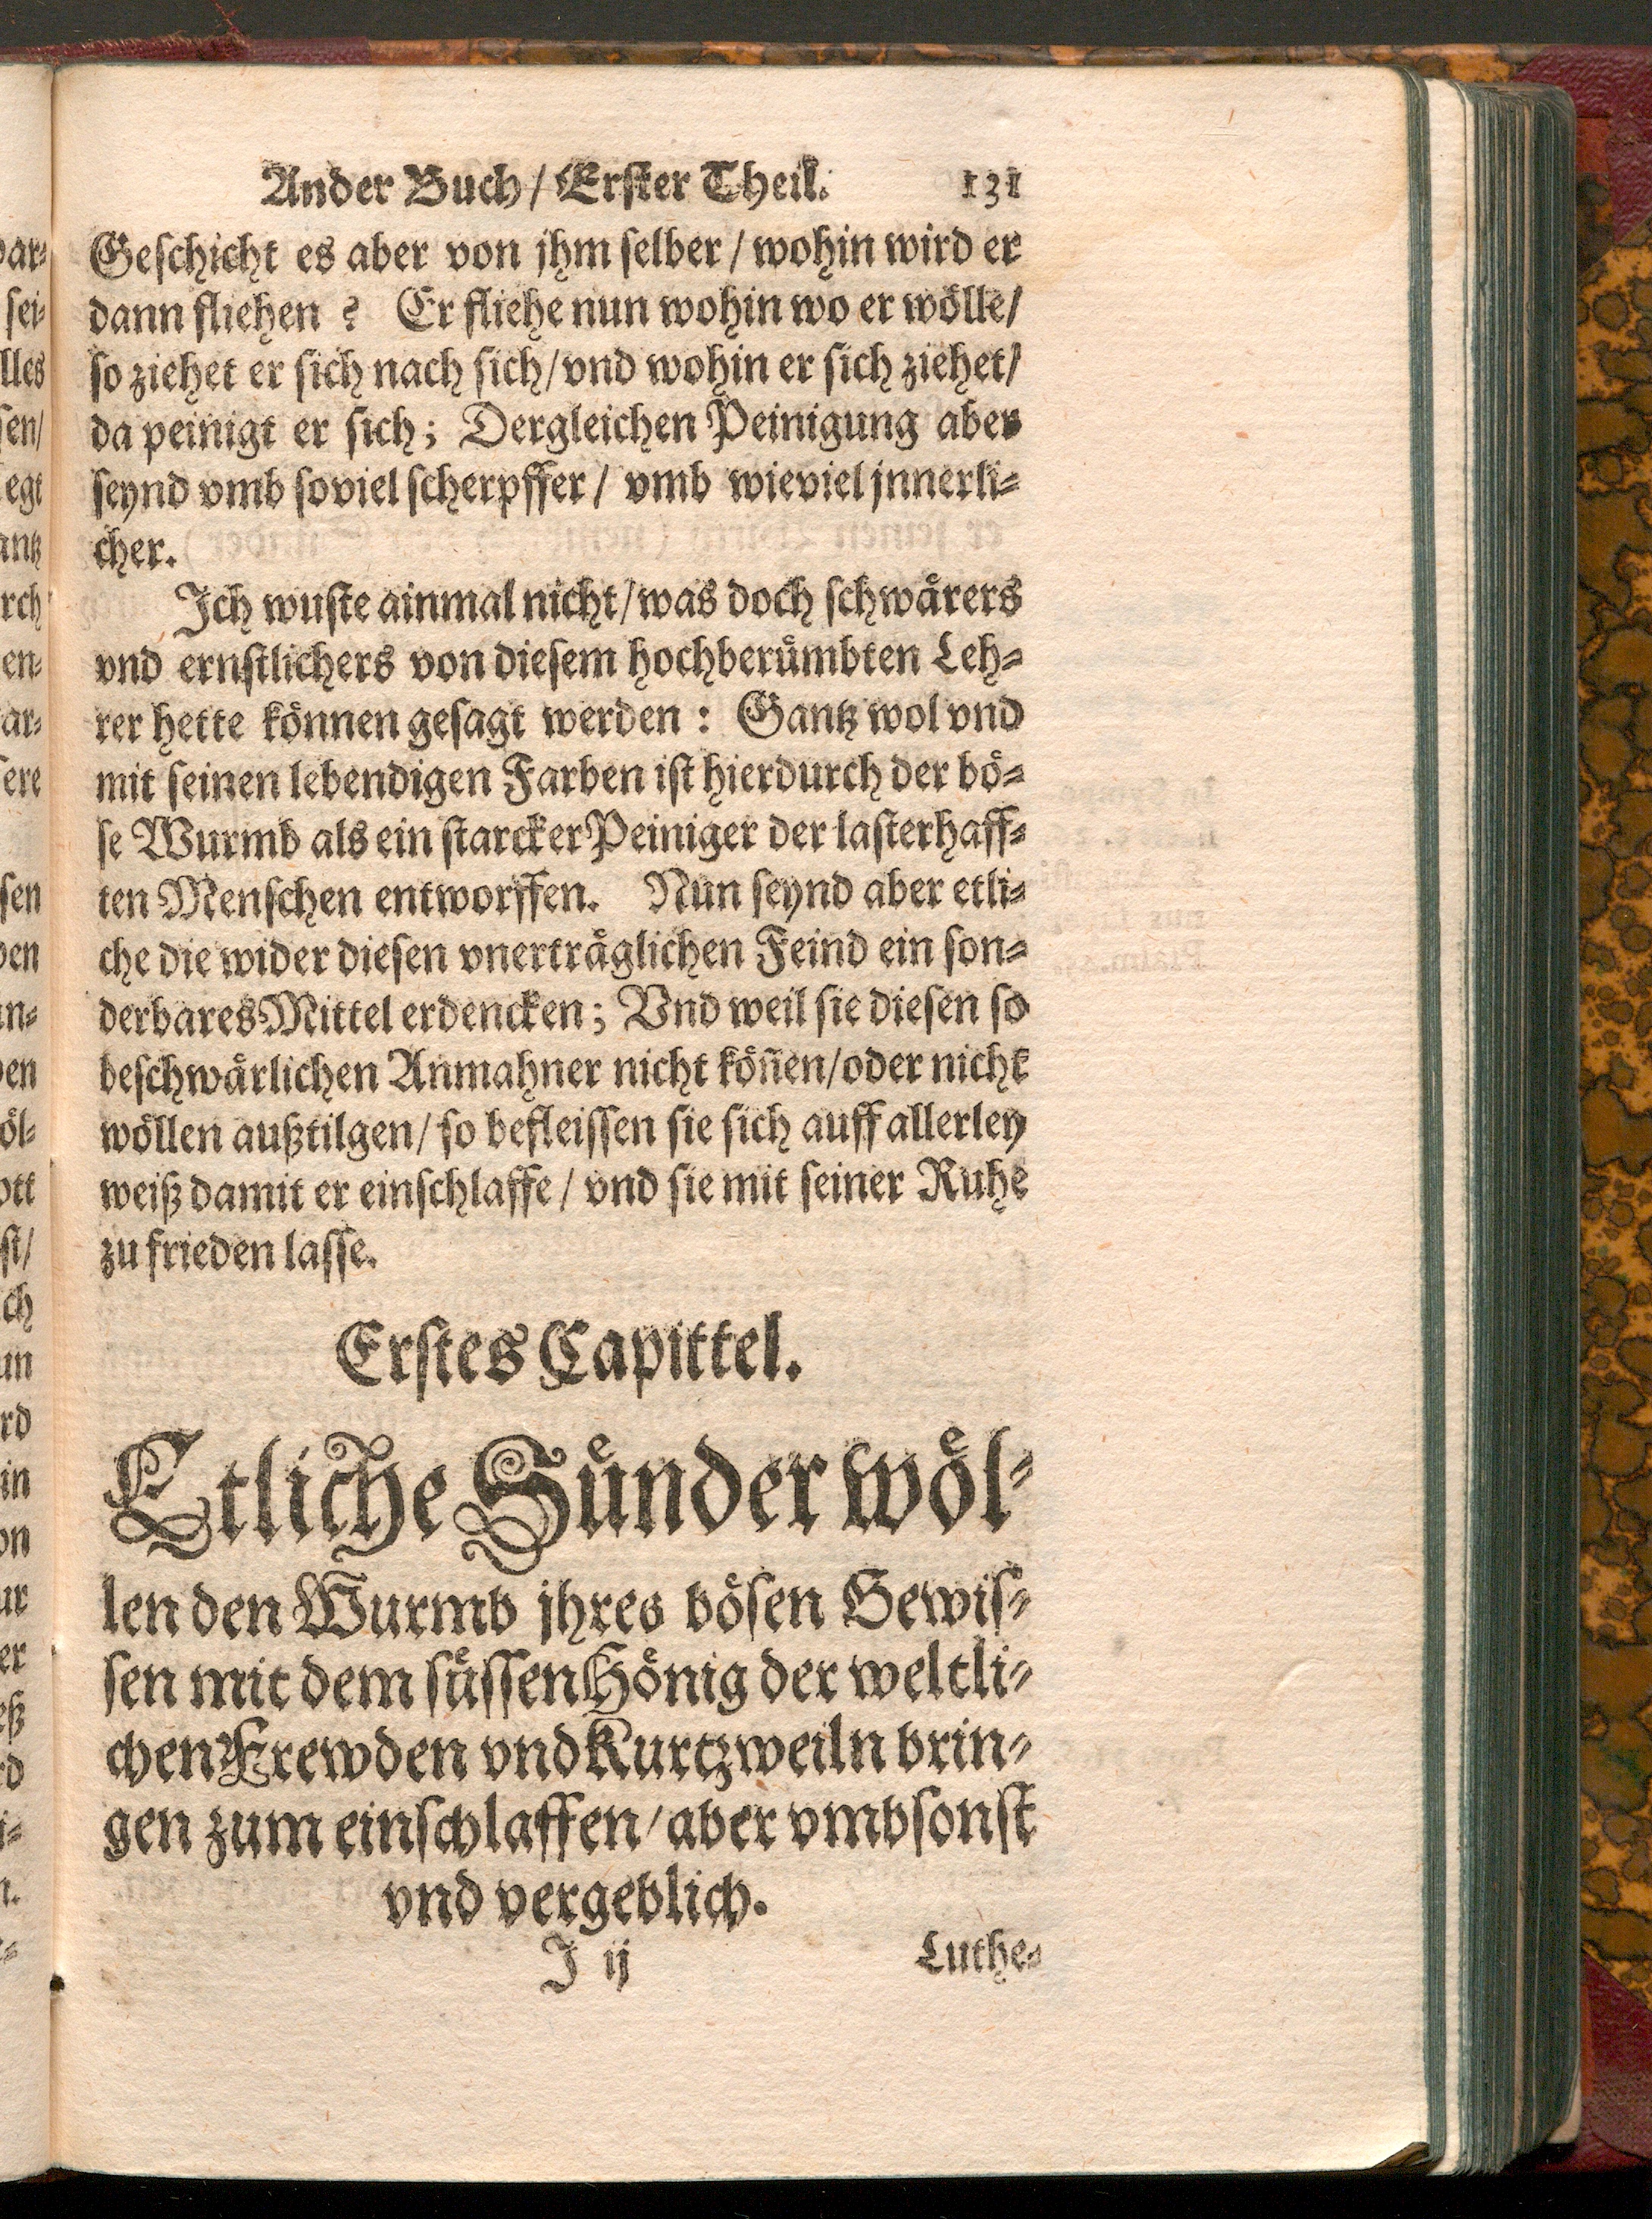 Ander Buch / Erster Theil. 131
Geschicht es aber von jhm selber / wohin wird er
dann fliehen? Er fliehe nun wohin wo er wölle/
so ziehet er sich nach sich/ vnd wohin er sich ziehet/
da peinigt er sich; Dergleichen Peinigung aber
seynd vmb soviel scherpffer / vmb wieviel jnnerli-
cher.
Ich wuste ainmal nicht/ was doch schwärers
vnd ernstlichers von diesem hochberümbten Leh-
rer hette können gesagt werden: Gantz wol vnd
mit seinen lebendigen Farben ist hierdurch der bö-
se Wurmb als ein starcker Peiniger der lasterhaff-
ten Menschen entworffen. Nun seynd aber etli-
che die wider diesen vnerträglichen Feind ein son-
derbares Mittel erdencken; Vnd weil sie diesen so
beschwärlichen Anmahner nicht köñen/ oder nicht
wöllen außtilgen/ so befleissen sie sich auff allerley
weiß damit er einschlaffe / vnd sie mit seiner Ruhe
zu frieden lasse.
Erstes Capittel.
Etliche Sünder wöl-
len den Wurmb jhres bösen Gewis-
sen mit dem süssen Hönig der weltli-
chen Frewden vnd Kurtzweiln brin-
gen zum einschlaffen/ aber vmbsonst
vnd vergeblich.
J ij Luthe-